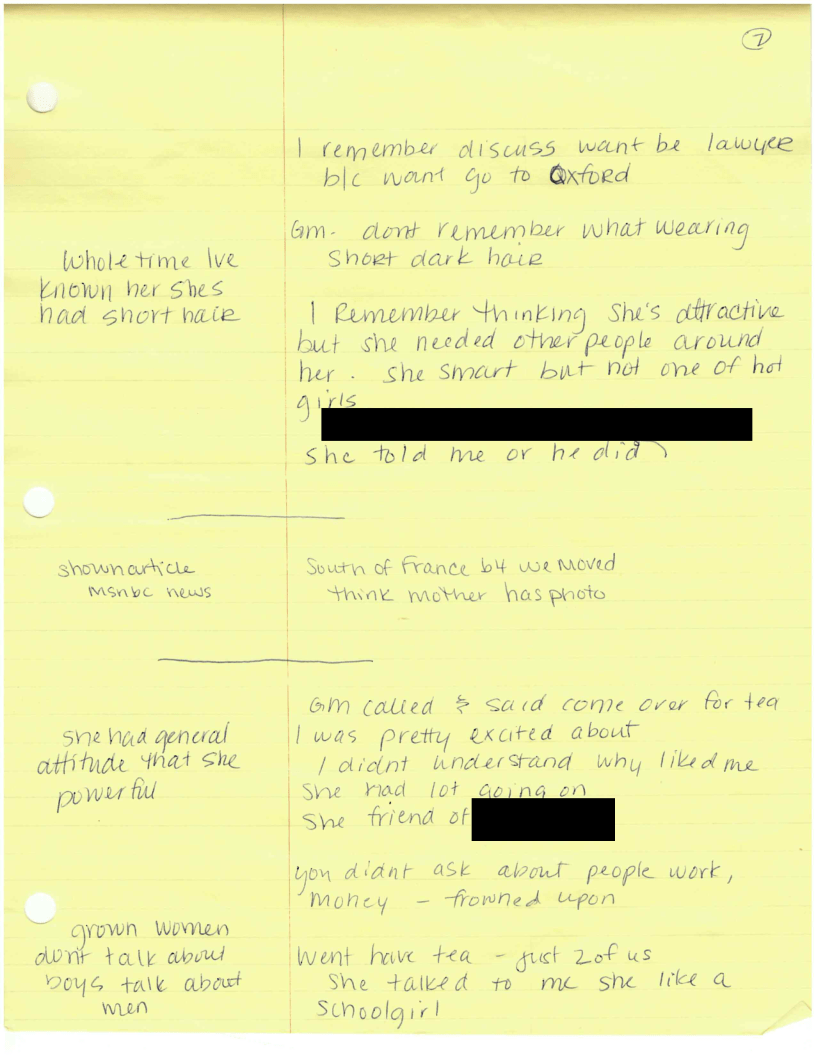 7
I remember discuss want be lawyer
b/c want go to Oxford
Gm- dont remember what wearing
short dark hair
Whole time Ive
known her shes
had short hair
I Remember thinking She's attractive
but she needed other people around
her. She smart but not one of hot
girls
She told me or he did
shown article
msnbc news
South of France b4 we moved
think mother has photo
Gm called & said come over for tea
I was pretty excited about
I didnt understand why liked me
She had lot going on
She friend of
She had general
attitude that she
powerful
you didnt ask about people work,
money - frowned upon
grown women
dont talk about
boys talk about
men
Went have tea - just 2 of us
She talked to me she like a
Schoolgirl